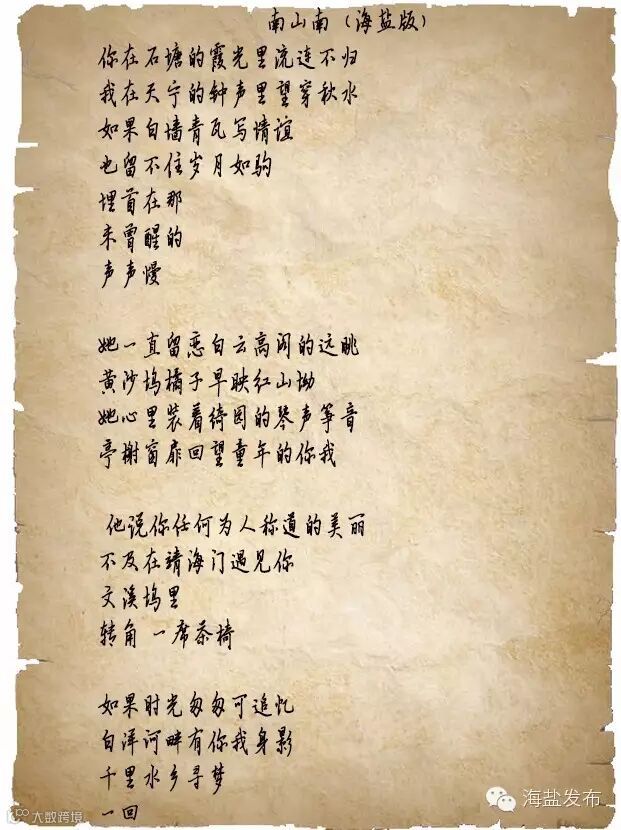 南山南（海盐版）
你在石塘的霞光里流连不归
我在天宁的钟声里望穿秋水
如果白墙青瓦写情谊
也留不住岁月如驹
埋首在那
未曾醒的
声声慢
她一直留恋白云高阁的远眺
黄沙坞橘子早映红山坳
她心里装着绮园的琴声筝音
亭榭窗扉回望童年的你我
他说你任何为人称道的美丽
不及在靖海门遇见你
文溪坞里
转角一席茶椅
如果时光匆匆可追忆
白洋河畔有你我身影
千里水乡寻梦
一回
大数跨境
海盐发布